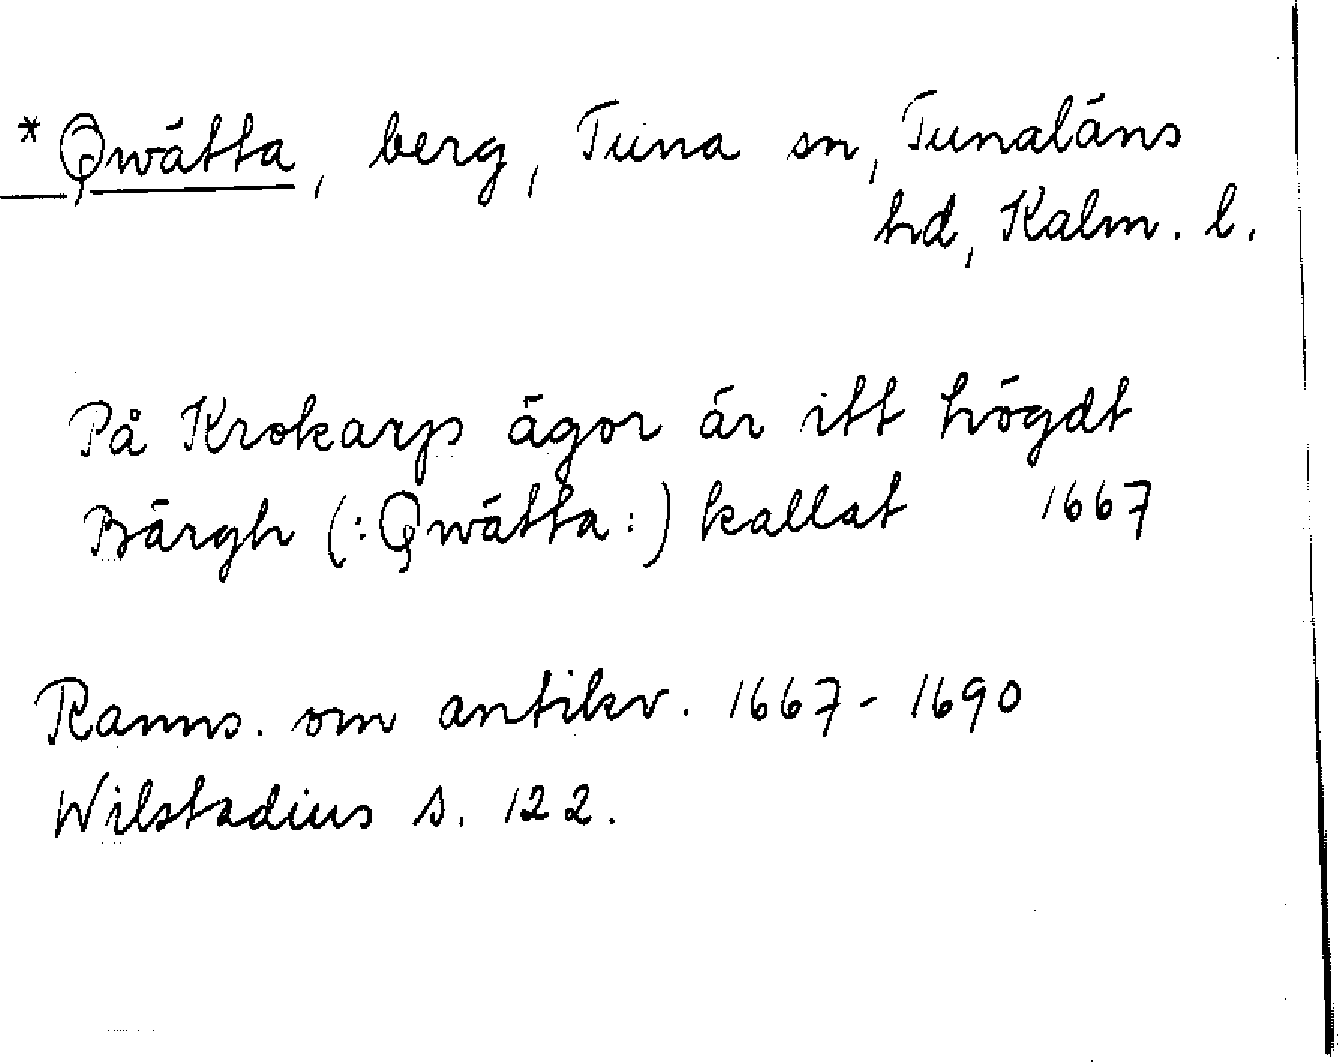 * Qwätta, berg, Tuna sn, Tunaläns
hd, Kalm. l.
På Krokarps ägor är itt högdt
Bärgh (:Qwätta:) kallat 1667
Ranns. om antikv. 1667-1690
Wilstadius s. 122.